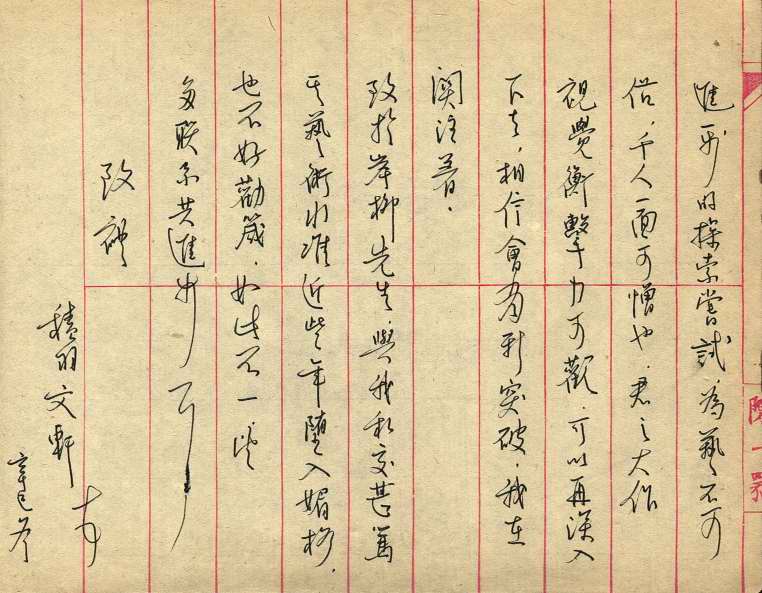 進行的探索嘗試，為藝不可
俗，千人一面可憎也，君之大作
視覺衝擊力可觀，可以再深入
下去，相信會有新突破，我在
關注着。
致於岸柳先生，與我私交甚篤
其藝術水準近些年墮入媚格，
也不好勸箴，如此不一些
多联系共進步
致礼
文軒